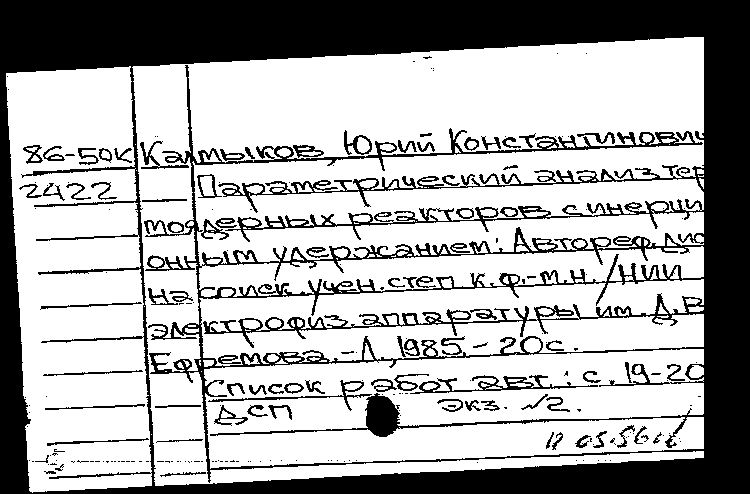 86-50К Калмыков, Юрий Константинович
2422 Параметрический анализ тер
моядерных реакторов с инерци
онным удержанием: Автореф. дис
на соиск. учен. степ к.ф.-м.н. /НИИ
электрофиз. аппаратуры им. Д.В
Ефремова. - Л., 1985. - 20 с.
Список работ авт.: с. 19-20
ДСП экз. №2.